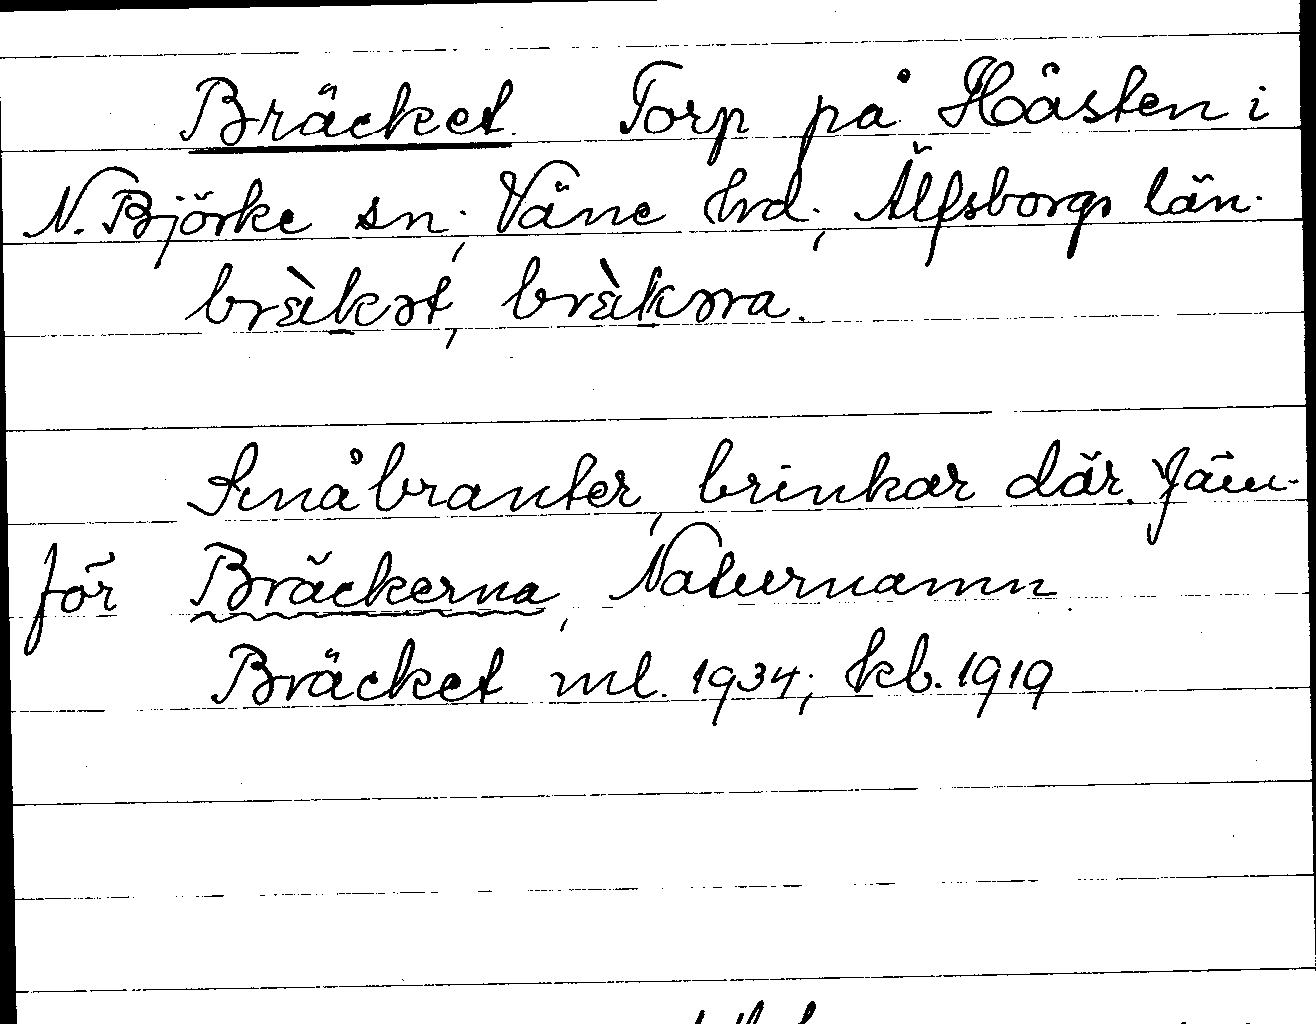 Bräcket. Torp på Hästen i
N. Björke sn; Väne hrd; Älfsborgs län.
brὲkət, brὲkəra.
Småbranter, brinkar där. Jäm-
för Bräckerna, Naturnamn
Bräcket ml. 1934; kb. 1919